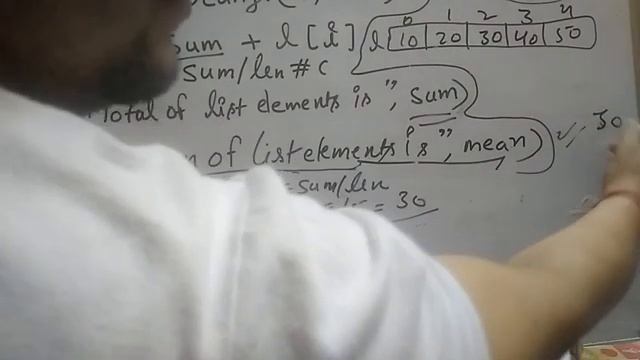 0 1 2 3 4
sum + l[i] l 10 20 30 40 50
sum/len #c
Total of list elements is", sum)
of list elements is", mean) 30
= sum/len
= 30